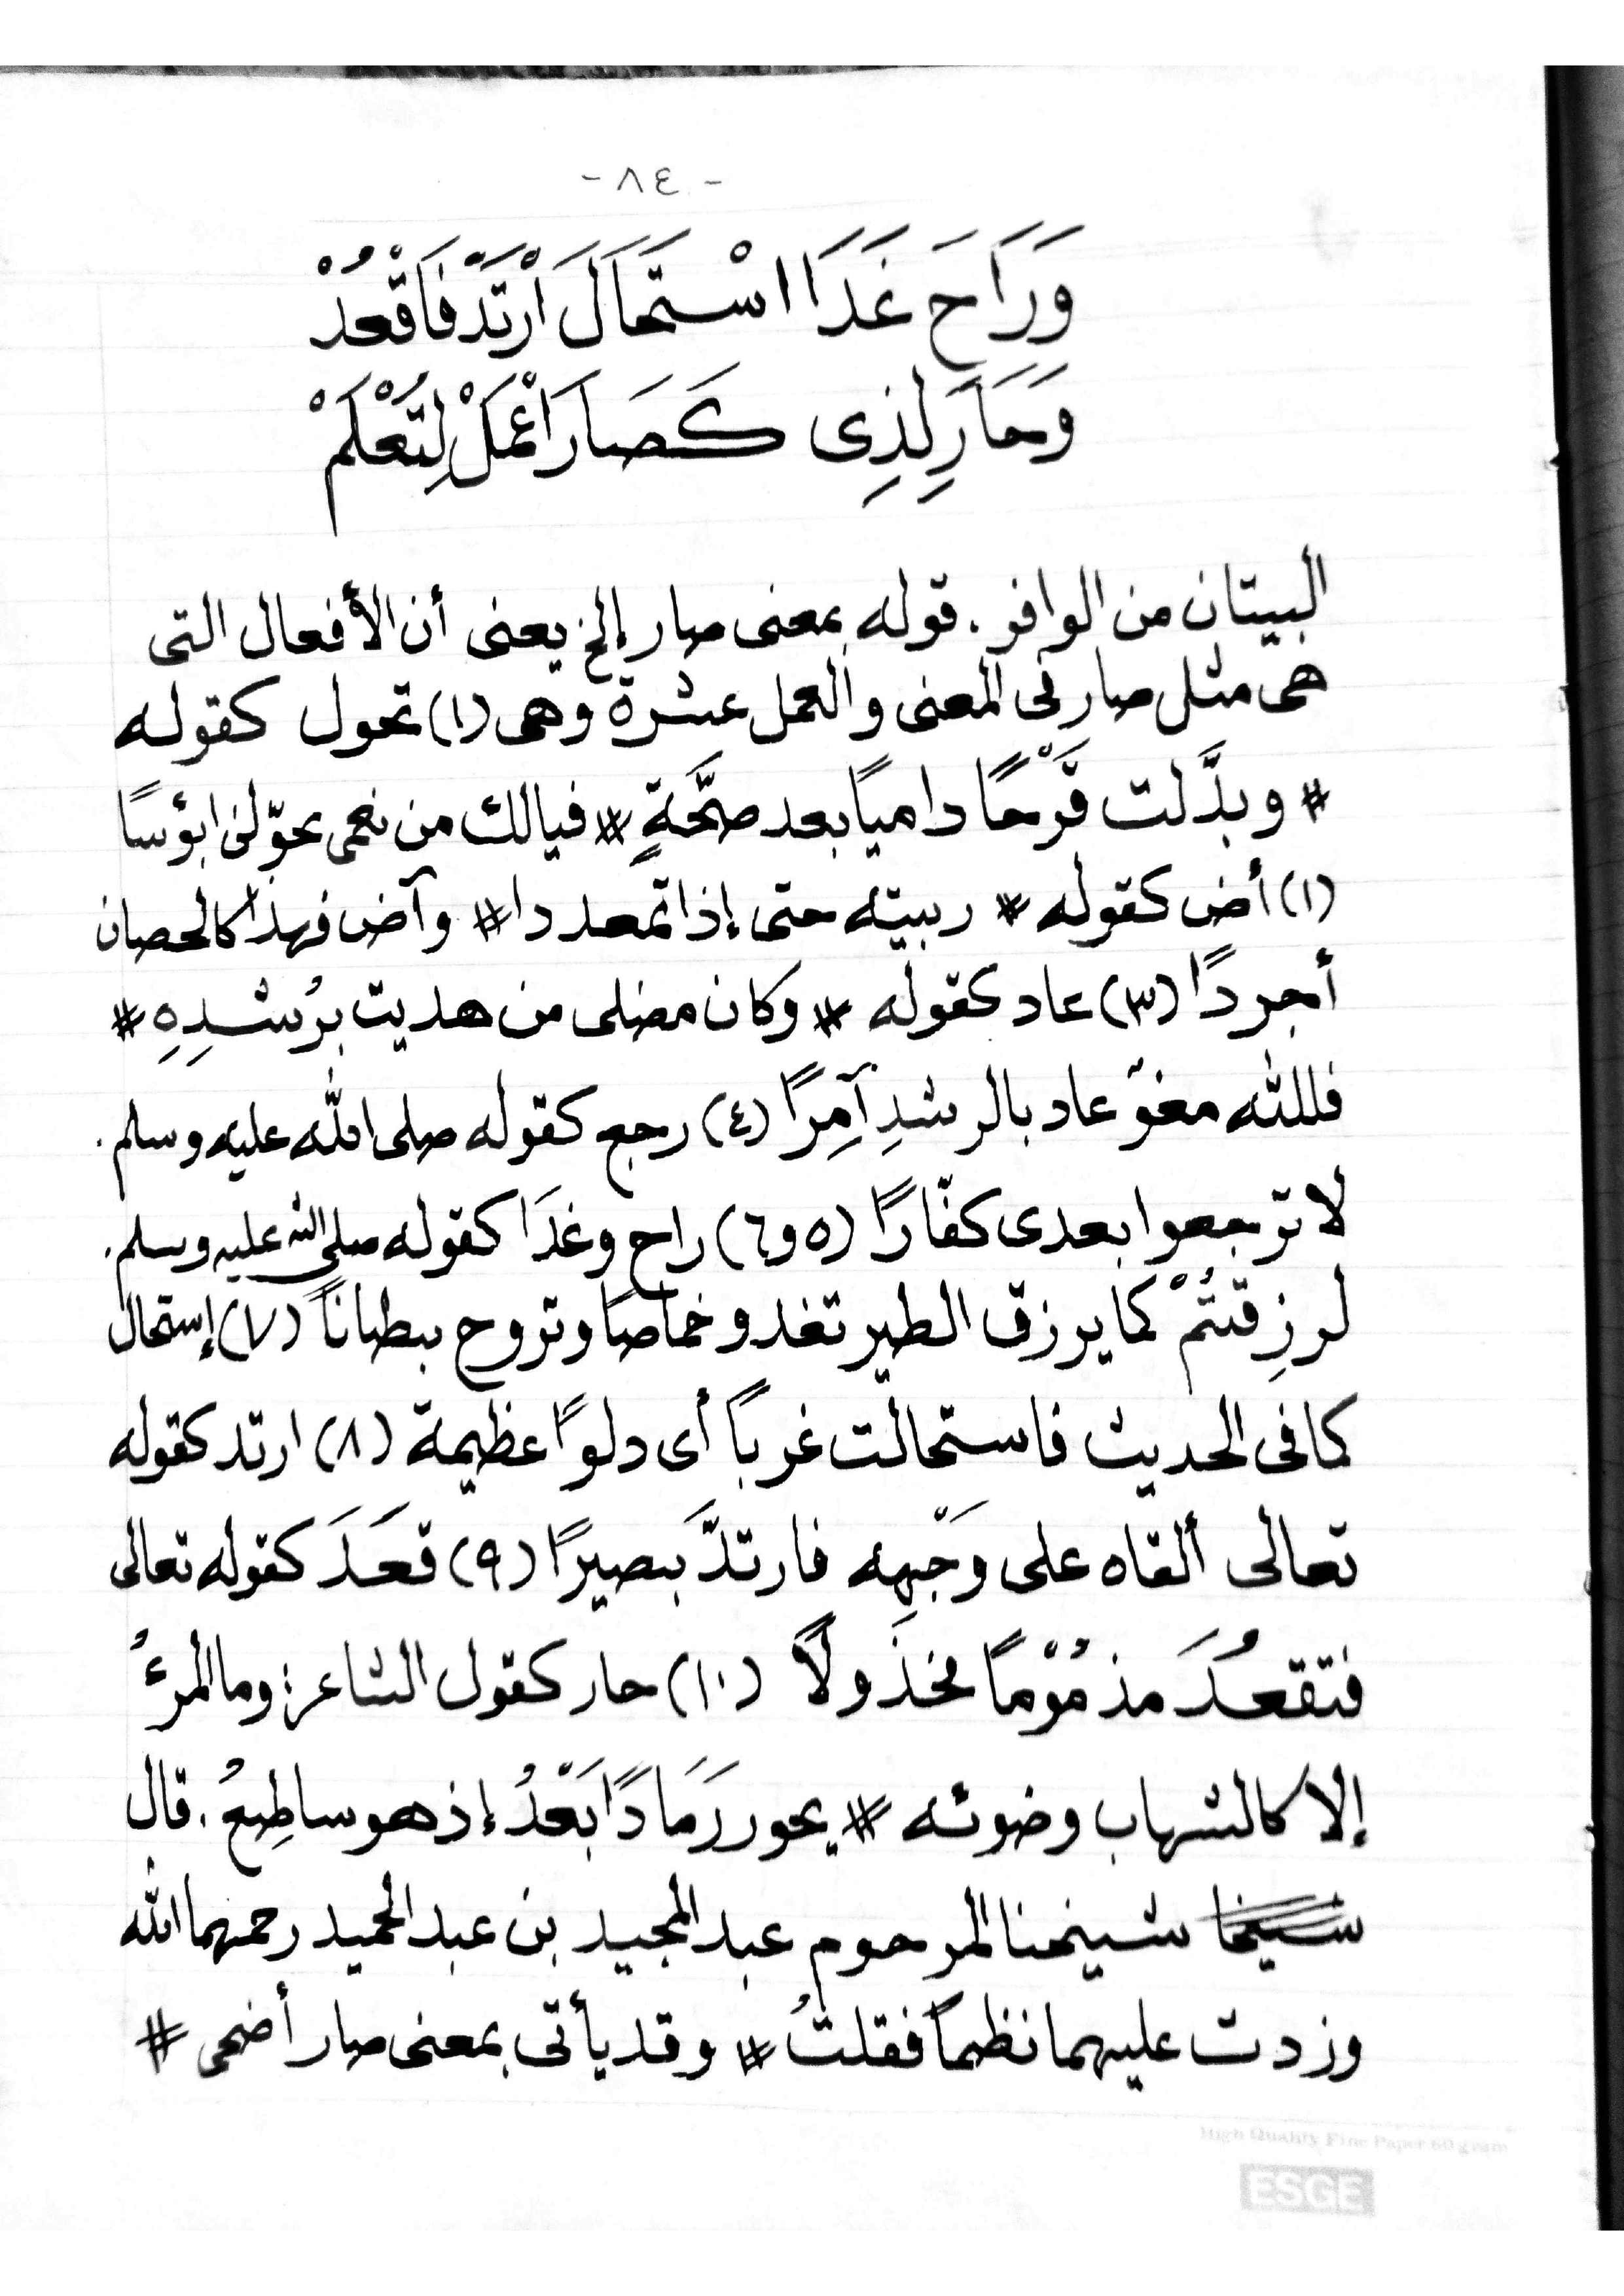 - ٨٤ -
وَرَاحَ غَدَا اسْتَحَالَ ارْتَدَّ فَاقْعُدْ
وَحَارَ لِذِى كَصَارَ اعْمَلْ لِتُعْلَمْ
البيتان من الوافر . قوله بمعنى صار إلخ يعنى أن الأفعال التى
هى مثل صار فى المعنى والعمل عشرة وهى (١) تحول كقوله
# وبدَّلت قَرْحًا داميًا بعد صحَّةٍ # فيالك من نعمى تحوّلن ابؤسًا
(١) أض كقوله # ربيته حتى إذا تمعددا # وآض فهذا كالحصان
أجردًا (٣) عاد كقوله # وكان مضلى من هديت برُشدِهِ #
فلله مغوٍ عاد بالرشدِ آمِرًا (٤) رجع كقوله صلى الله عليه وسلم .
لا ترجعوا بعدى كفّارًا (٥ و٦) راح وغدَا كقوله صلى الله عليه وسلم .
لرزِقتُمْ كما يرزق الطير تغدو خماصًا وتروح بطانًا (٧) إستحال
كما فى الحديث فاستحالت غربًا أى دلوًا عظيمة (٨) ارتد كقوله
تعالى ألقاه على وَجْهِه فارتدَّ بصيرًا (٩) قعَدَ كقوله تعالى
فتقعُدَ مذمُوْمًا مخذَولًا (١٠) حار كقول الشاعر : وما المرءُ
إلا كالشهاب وضوئه # يحور رَمَادًا بَعْدُ إذ هو ساطِعُ . قال
شيخنا شيخنا المرحوم عبد المجيد بن عبد الحميد رحمهما الله
وزدت عليهما نظمًا فقلتُ # وقد يأتى بمعنى صار أضحى #
High Quality Fine Paper 60 gram
ESGE